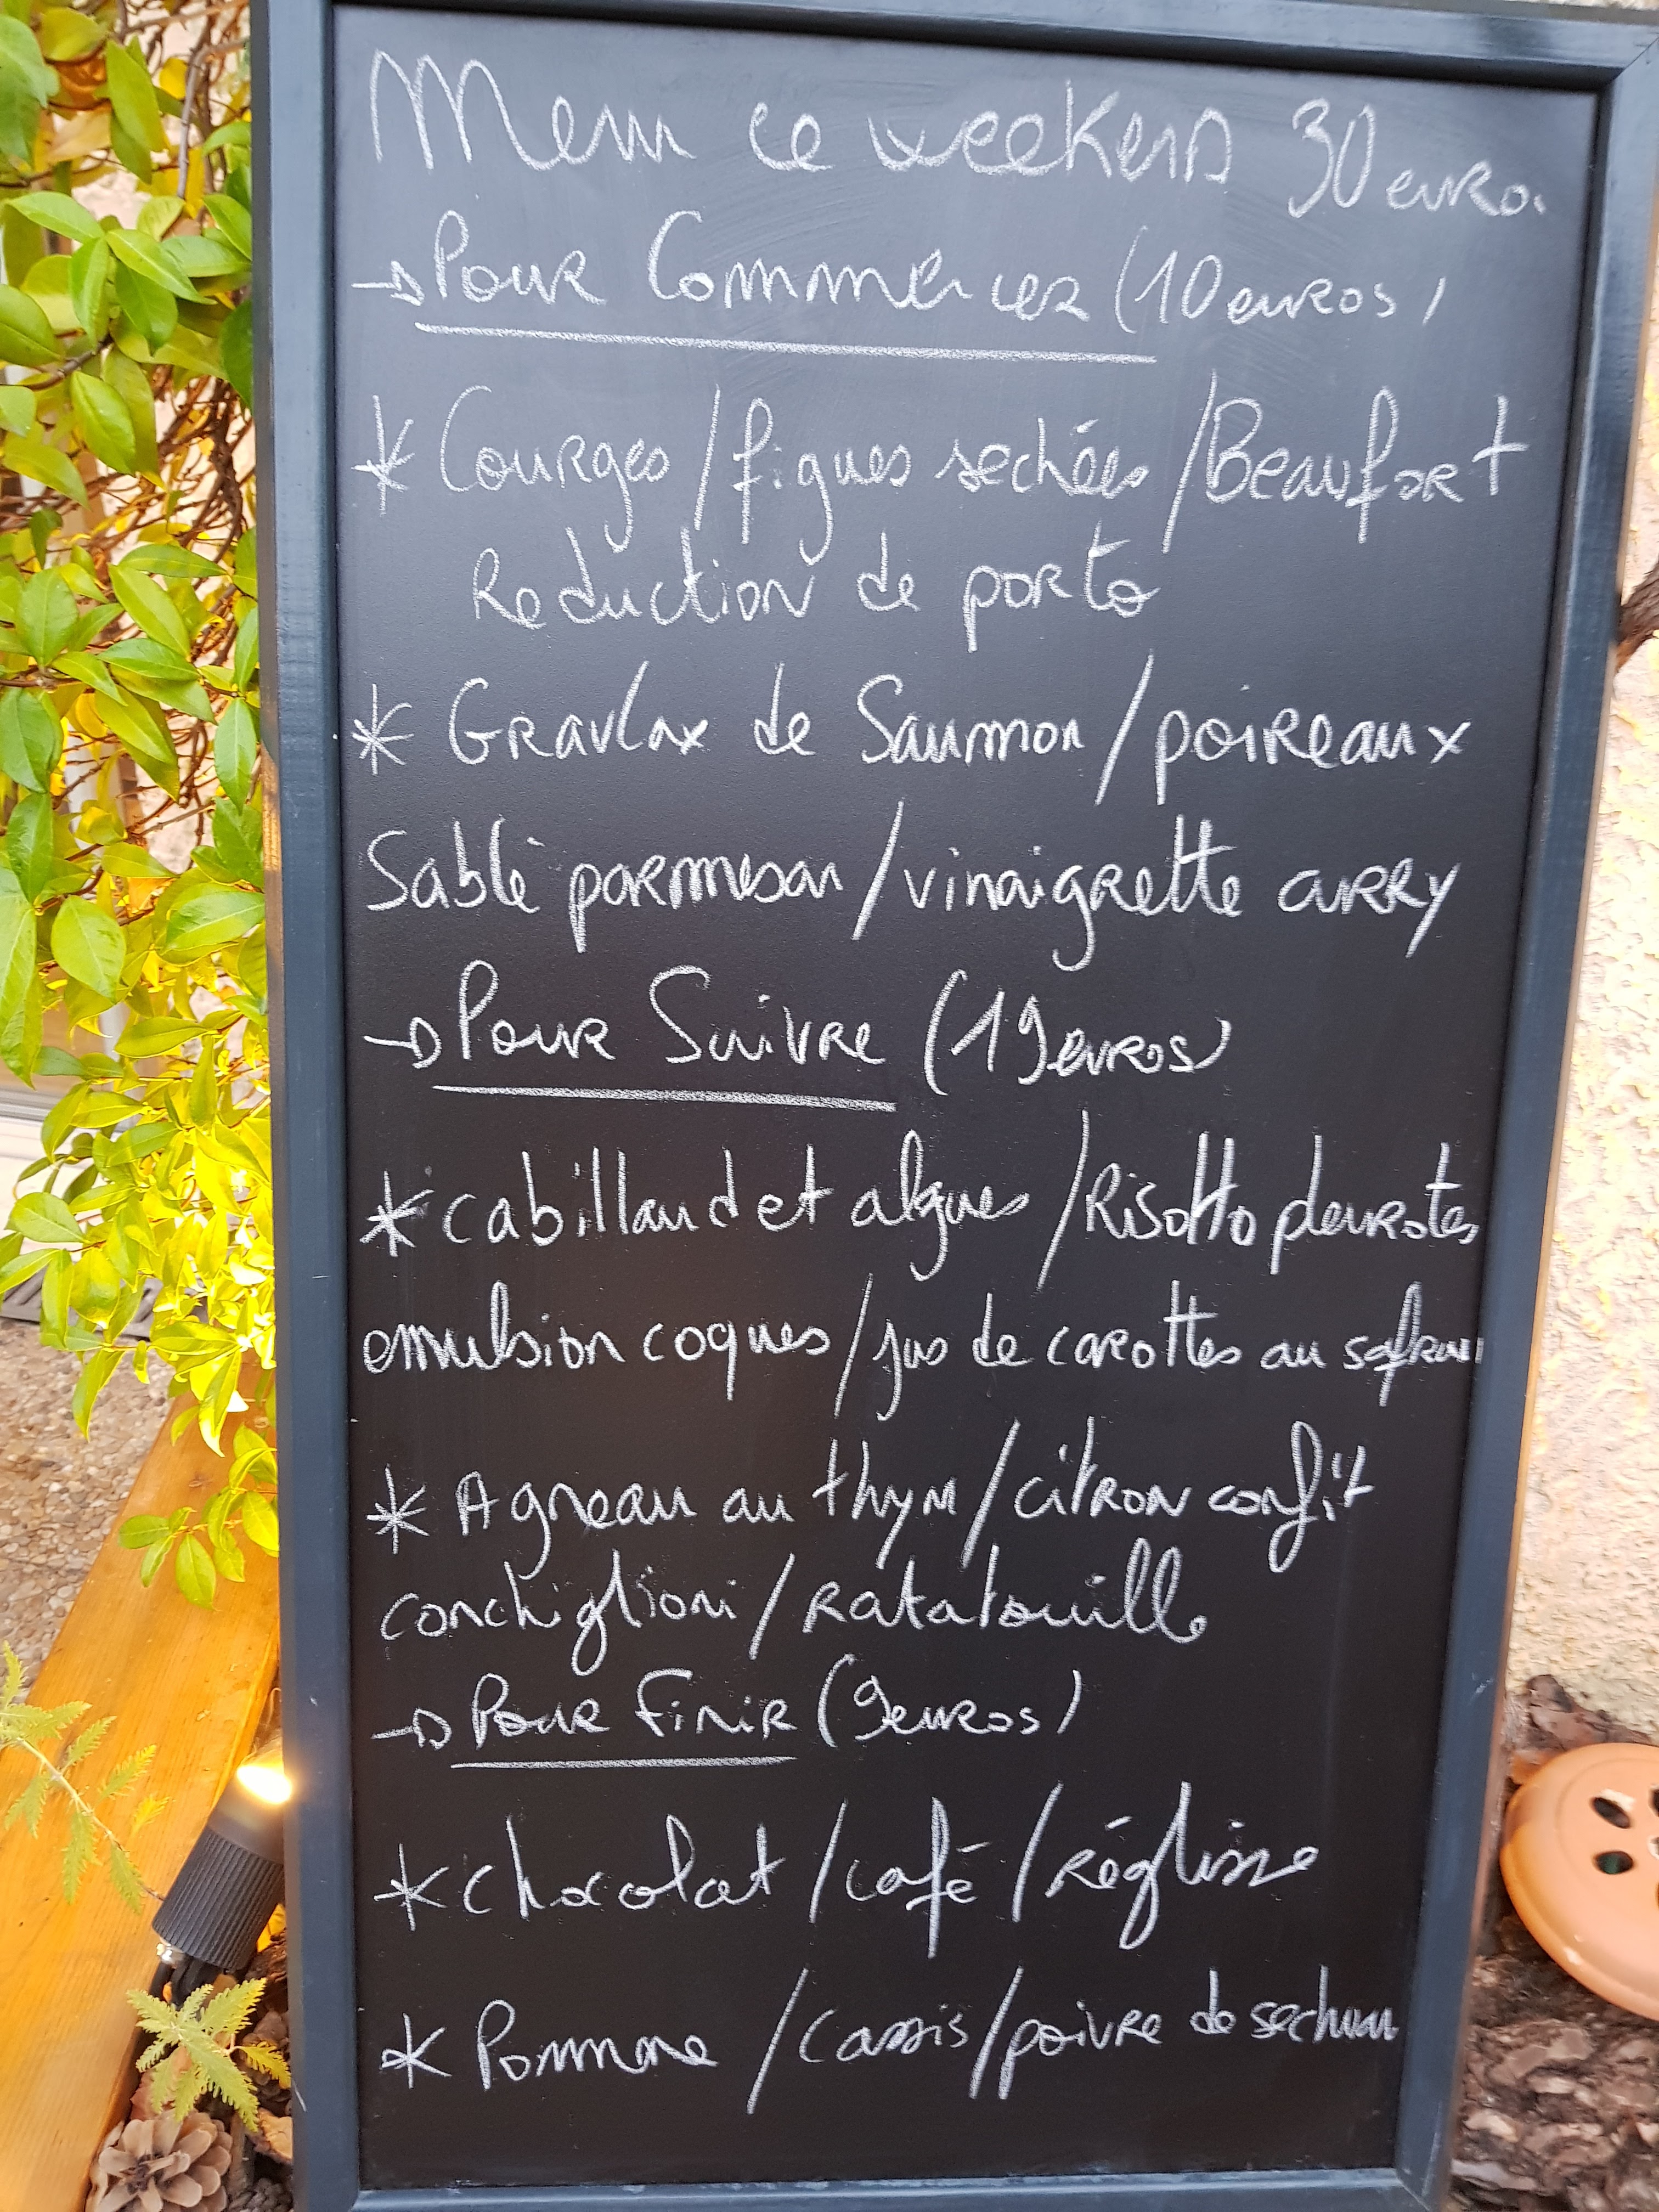 Menu ce weekend 30 euro.
→ Pour Commencer (10 euros)
* Courges / figues sechées / Beaufort
Reduction de porto
* Gravlax de Saumon / poireaux
Sablé parmesan / vinaigrette curry
→ Pour Suivre (19 euros)
* cabillaud et algues / Risotto pleurotes
emulsion coques / jus de carottes au safran
* Agneau au thym / citron confit
conchiglioni / Ratatouille
→ Pour Finir (9 euros)
* chocolat / café / réglisse
* Pomme / cassis / poivre de sechuan